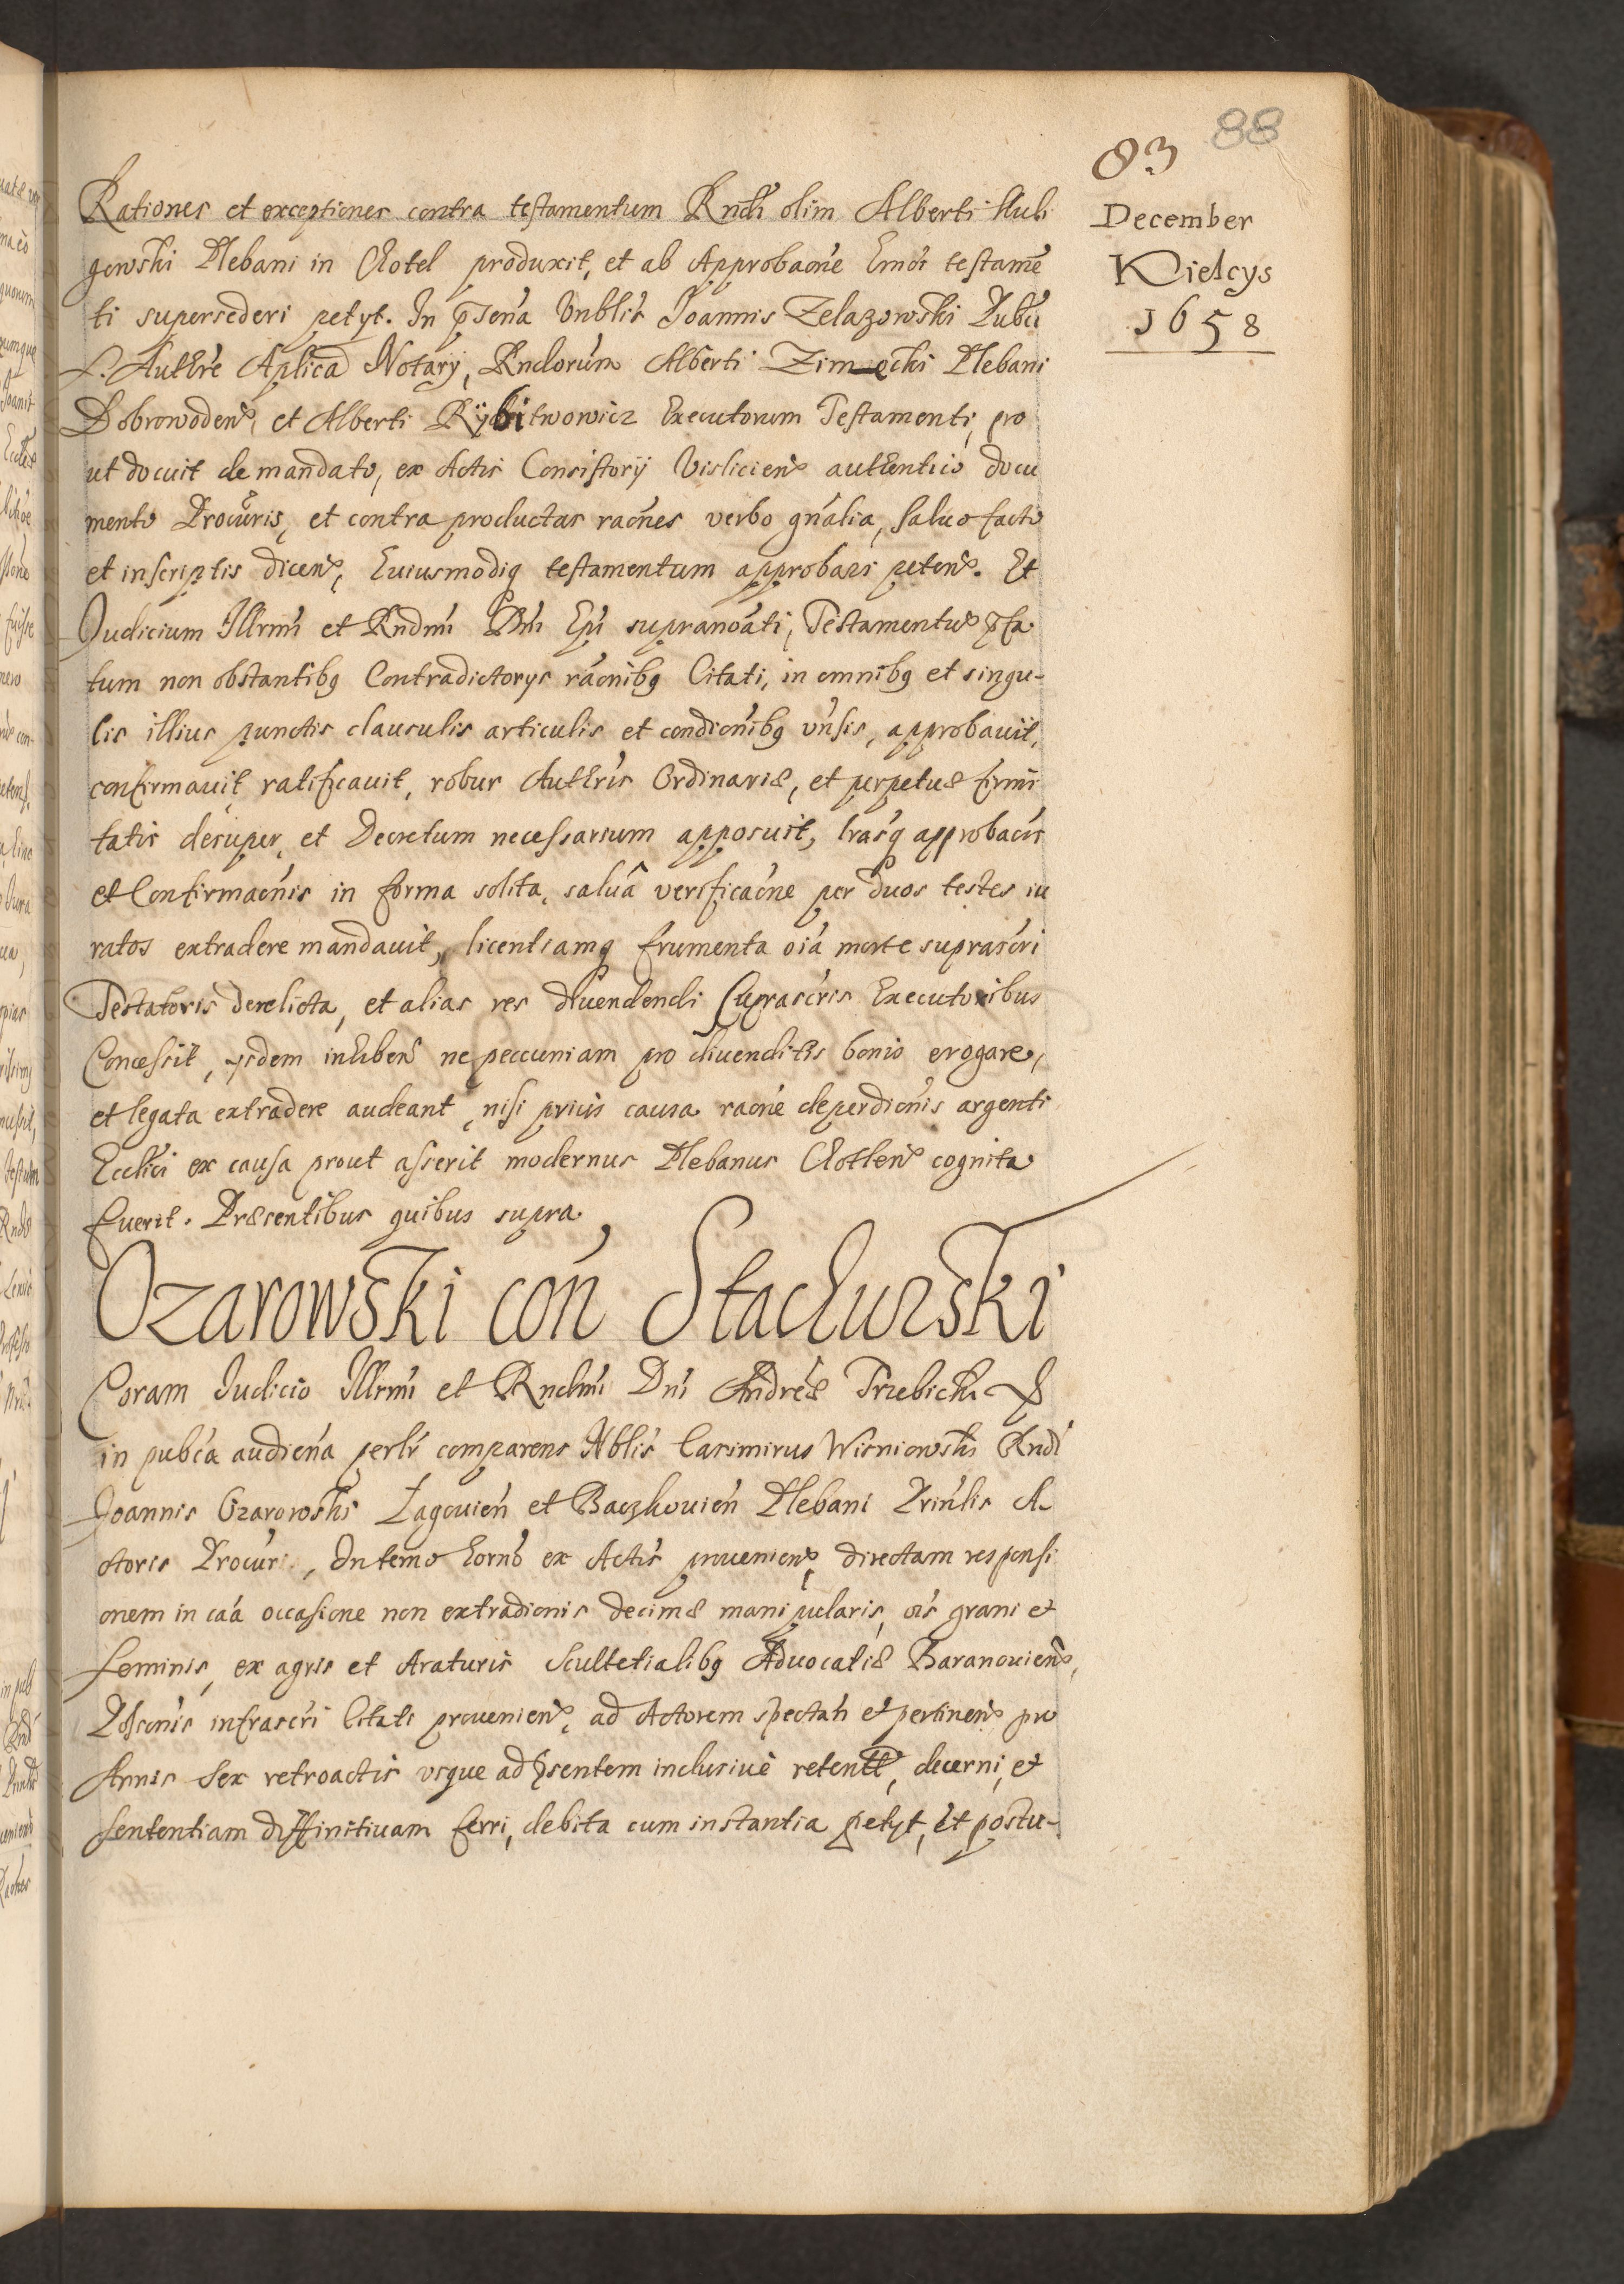 88
83
December
Kielcys
1658
Rationes et exceptiones contra testamentum Rndi olim Alberti
gowski Plebani in Chotel produxit, et ab Approbaone testame
ti supersederi petyt. In Joannis Zelazowski
Authre Aplica Notary, Rndorum Alberti Plebani
Dobrowodens et Alberti Rybitwowicz Executorum Testamenti, pro
ut docuit de mandato, ex Actis Consistorij Visliciens authentico docu
mento Procuris, et contra productas raones verbo gnalia, salvo facto
et inscriptis dicens, huiusmodiq testamentum approbari petens. Et
Judicium Illrmi et Rndmi Dni Epi supranoati, Testamentum pfa
tum non obstantibq Contradictorys raonibq Citati, in omnibq et singu-
lis illius punctis clausulis articulis et condionibq vnsis, approbavit,
confirmavit, ratificavit, robur Authris Ordinariæ, et perpetuæ firmi
tatis desuper, et Decretum necessarium apposuit, lrasq approbaois
et Confirmaonis in forma solita, salvâ verificaone per duos testes iu
ratos extradere mandavit, licentiamq frumenta oia morte suprascri
Testatoris derelicta, et alias res divendendi suprascris Executoribus
Concessit, ysdem inhibens ne peccuniam pro divenditis bonis erogare,
et legata extradere audeant, nisi prius causa raone deperdionis argenti
Ecclici ex causa prout asserit modernus Plebanus Chotlens cognita
fuerit. Præsentibus quibus supra.
Ozarowski con Stachurski
Coram Iudicio Illrmi et Rndmi Dni Andreæ Trzebicki
in publca audiena perlr comparens Nblis Casimirus Wisniowski Rndi
Joannis Ozarowski Lagovien et Baczkovien Plebani Prinlis A-
ctoris Procur, Intermo horno ex Actis proveniens, directam responsi
onem in caa occasione non extradionis decimæ manipularis, ois grani et
seminis, ex agris et Araturis Scultetialibq Advocatiæ Baranoviens,
Possonis infrascri Citati proveniens, ad Actorem spectan et pertinens pro
Annis sex retroactis vsque ad psentem inclusive retent, decerni, et
sententiam diffinitivam ferri, debita cum instantia petyt, Et postu-